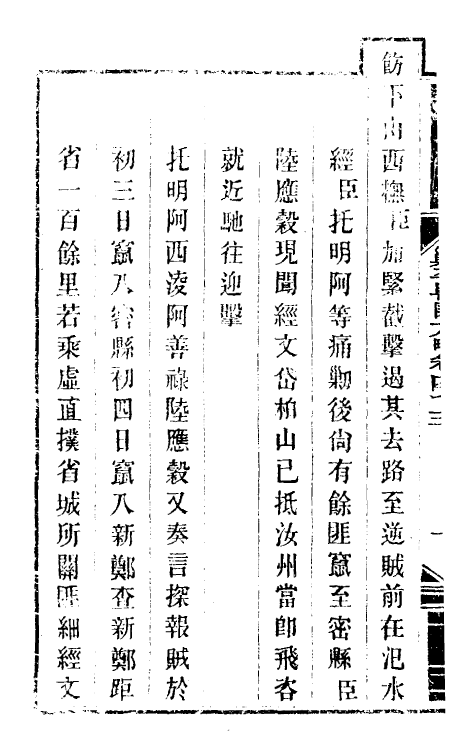 飭下山西撫臣加緊截擊遏其去路至逆賊前在汜水
經臣托明阿等痛勦後尚有餘匪竄至密縣臣
陸應穀現聞經文岱柏山已抵汝州當卽飛咨
就近馳往迎擊
托明阿西凌阿善祿陸應穀又奏言探報賊於
初三日竄入密縣初四日竄入新鄭查新鄭距
省一百餘里若乘虛直撲省城所關匪細經文